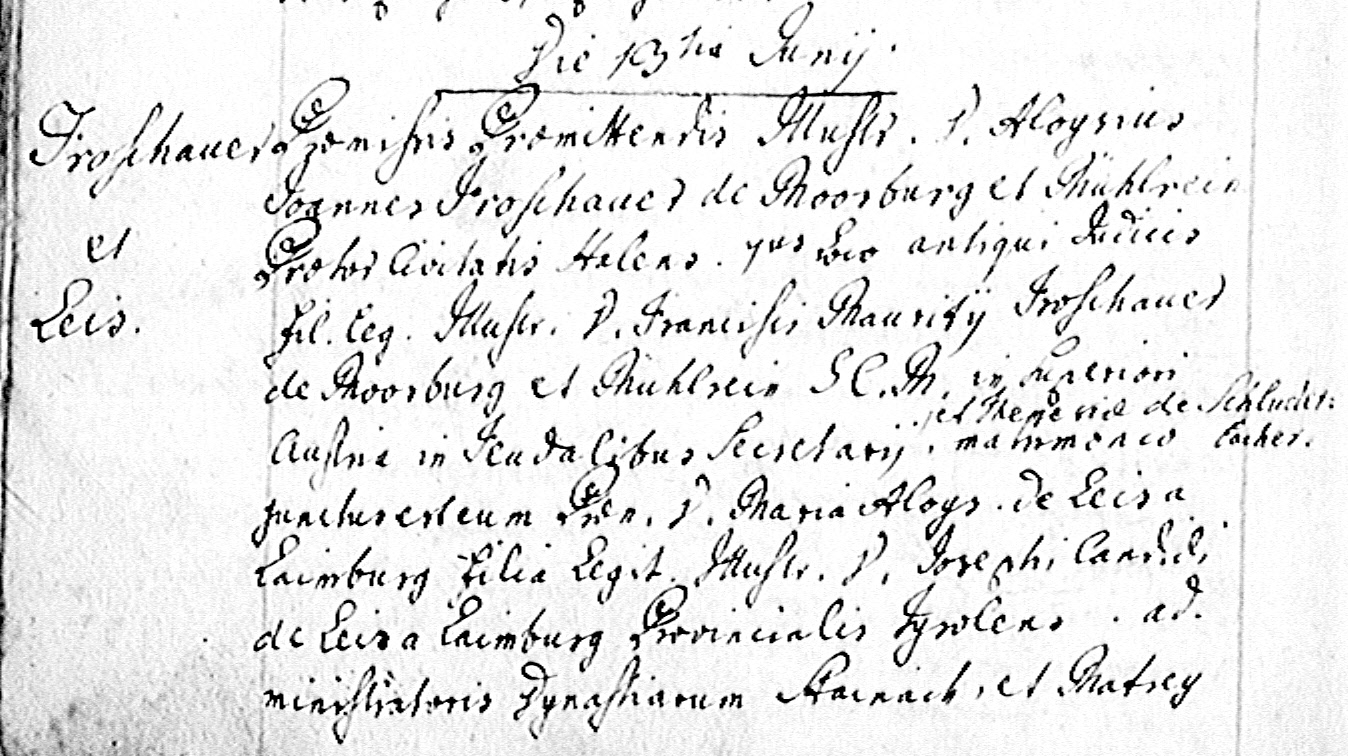 Die 13tia Junij.
Froschauer
et
Leis.
Præmissis Præmittendis Illustr. D. Aloysius
Joannes Froschauer de Moorburg et Mühlrein
Prætor Civitatis Halens. loco antiqui Judicis
fil. leg. Illustr. D. Francisci Mauritij Froschauer
de Moorburg et Mühlrein S.C.M. in Superiori
et de Schluder:
Austria in Feudalibus Secretarij. matrimonio
junctus est cum Præn. D. Maria Aloys. de Leis a
Laimburg filia Legit. Illustr. D. Josephi Candidi
de Leis a Laimburg Provincialis Tyrolens. ad.
ministratoris Dynastiarum Stainach, et Matrey